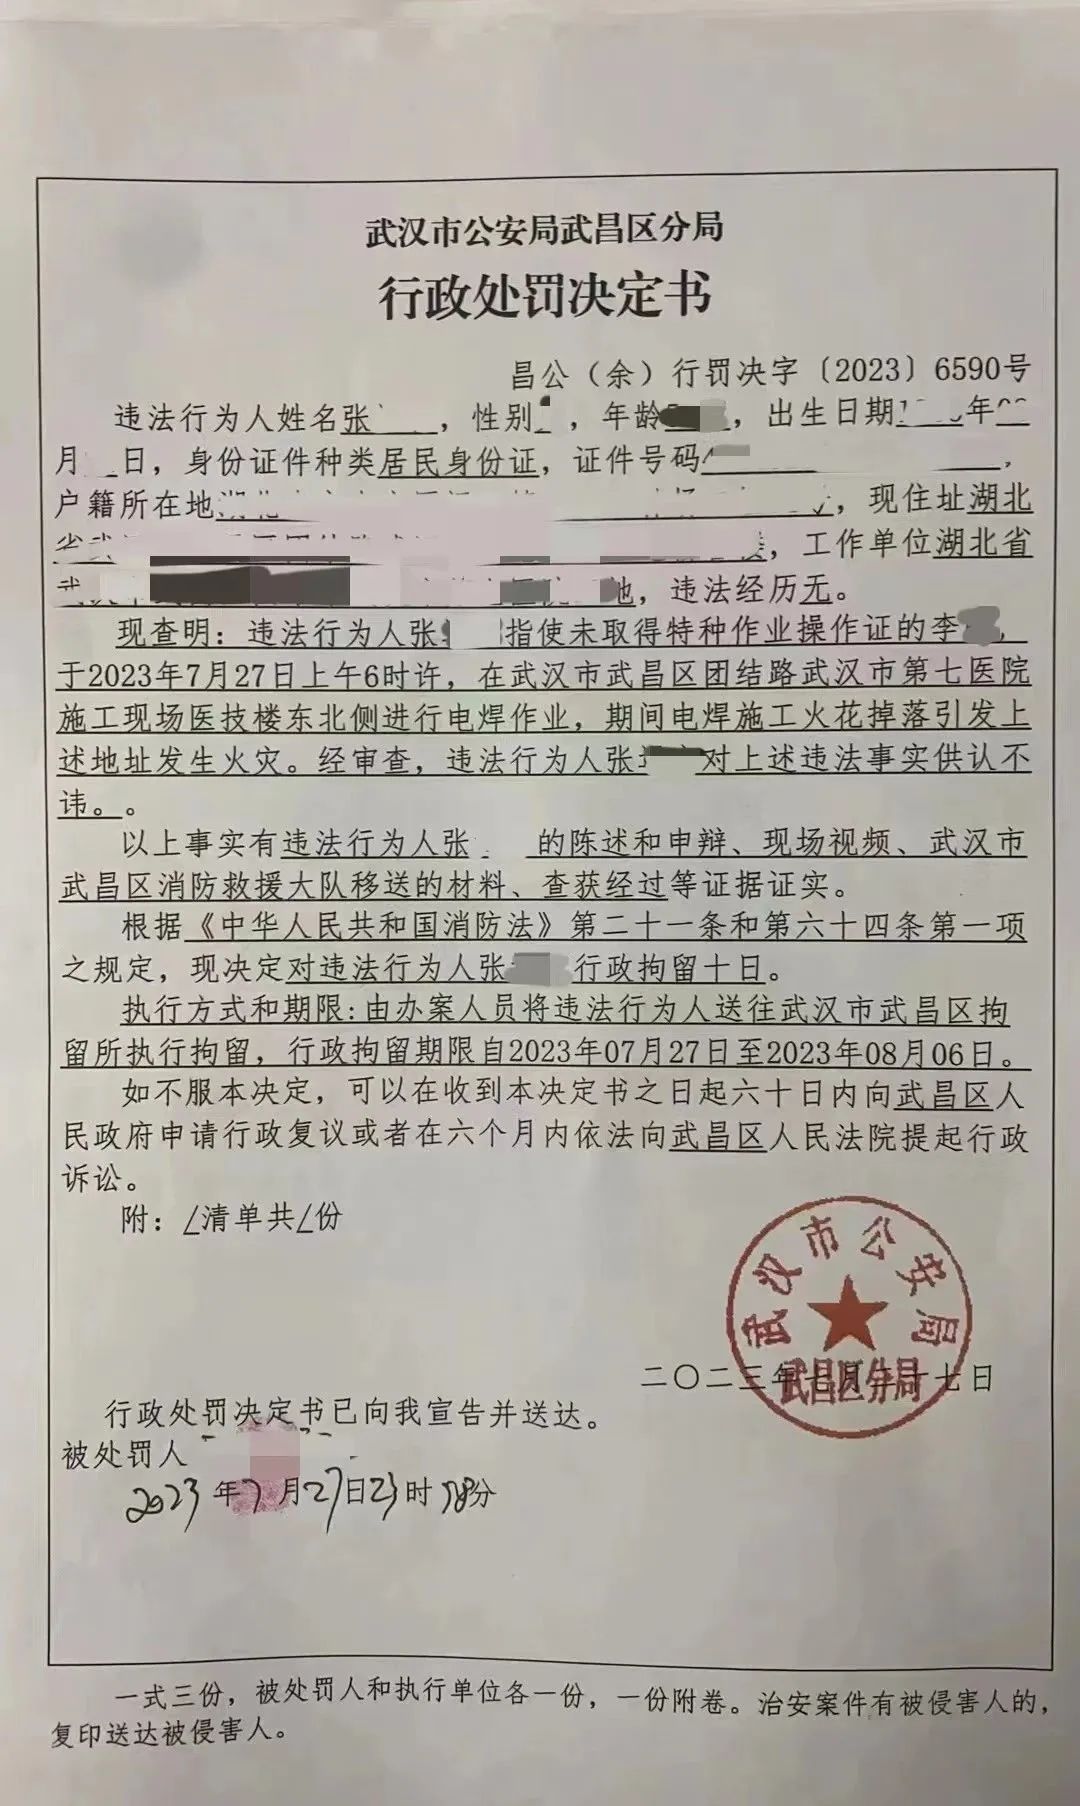 武汉市公安局武昌区分局
行政处罚决定书
昌公（余）行罚决字〔2023〕6590号
违法行为人姓名张，性别，年龄，出生日期年
月日，身份证件种类居民身份证，证件号码，
户籍所在地，现住址湖北
省，工作单位湖北省
地，违法经历无。
现查明：违法行为人张指使未取得特种作业操作证的李，
于2023年7月27日上午6时许，在武汉市武昌区团结路武汉市第七医院
施工现场医技楼东北侧进行电焊作业，期间电焊施工火花掉落引发上
述地址发生火灾。经审查，违法行为人张对上述违法事实供认不
讳。。
以上事实有违法行为人张的陈述和申辩、现场视频、武汉市
武昌区消防救援大队移送的材料、查获经过等证据证实。
根据《中华人民共和国消防法》第二十一条和第六十四条第一项
之规定，现决定对违法行为人张行政拘留十日。
执行方式和期限:由办案人员将违法行为人送往武汉市武昌区拘
留所执行拘留，行政拘留期限自2023年07月27日至2023年08月06日。
如不服本决定，可以在收到本决定书之日起六十日内向武昌区人
民政府申请行政复议或者在六个月内依法向武昌区人民法院提起行政
诉讼。
附：/清单共/份
武汉市公安局
武昌区分局
二〇二三年七月二十七日
行政处罚决定书已向我宣告并送达。
被处罚人
2023年7月27日23时58分
一式三份，被处罚人和执行单位各一份，一份附卷。治安案件有被侵害人的，
复印送达被侵害人。